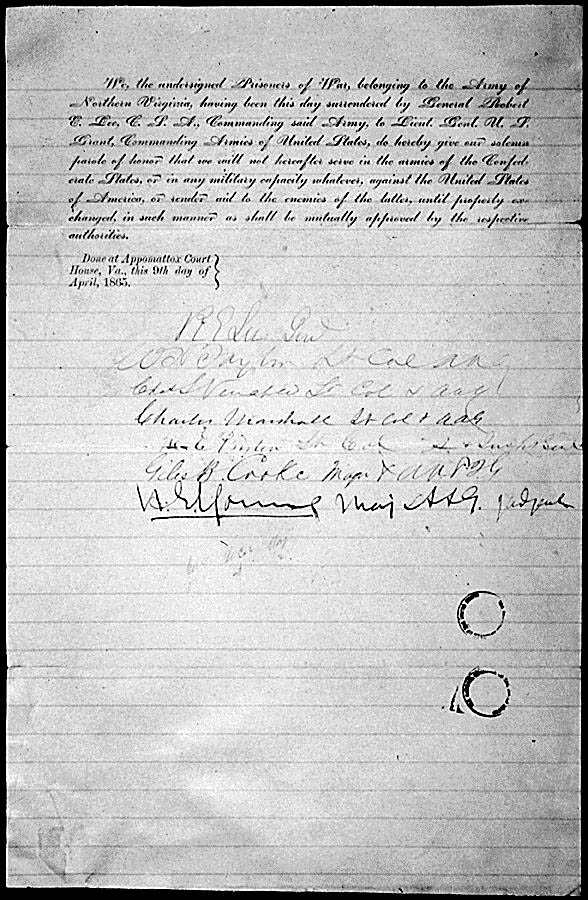 We, the undersigned Prisoners of War, belonging to the Army of
Northern Virginia, having been this day surrendered by General Robert
E. Lee, C. S. A., Commanding said Army, to Lieut. Genl. U. S.
Grant, Commanding Armies of United States, do hereby give our solemn
parole of honor that we will not hereafter serve in the armies of the Confed-
erate States, or in any military capacity whatever, against the United States
of America, or render aid to the enemies of the latter, until properly ex-
changed, in such manner as shall be mutually approved by the respective
authorities.
Done at Appomattox Court
House, Va., this 9th day of
April, 1865.
R E Lee Genl
W H Taylor Lt Col AAG
Chas S Venable Lt Col & AAG
Charles Marshall Lt Col & AAG
H E Peyton Lt Col
Giles B. Cooke Major & AAG
H. E. Young Maj AAG